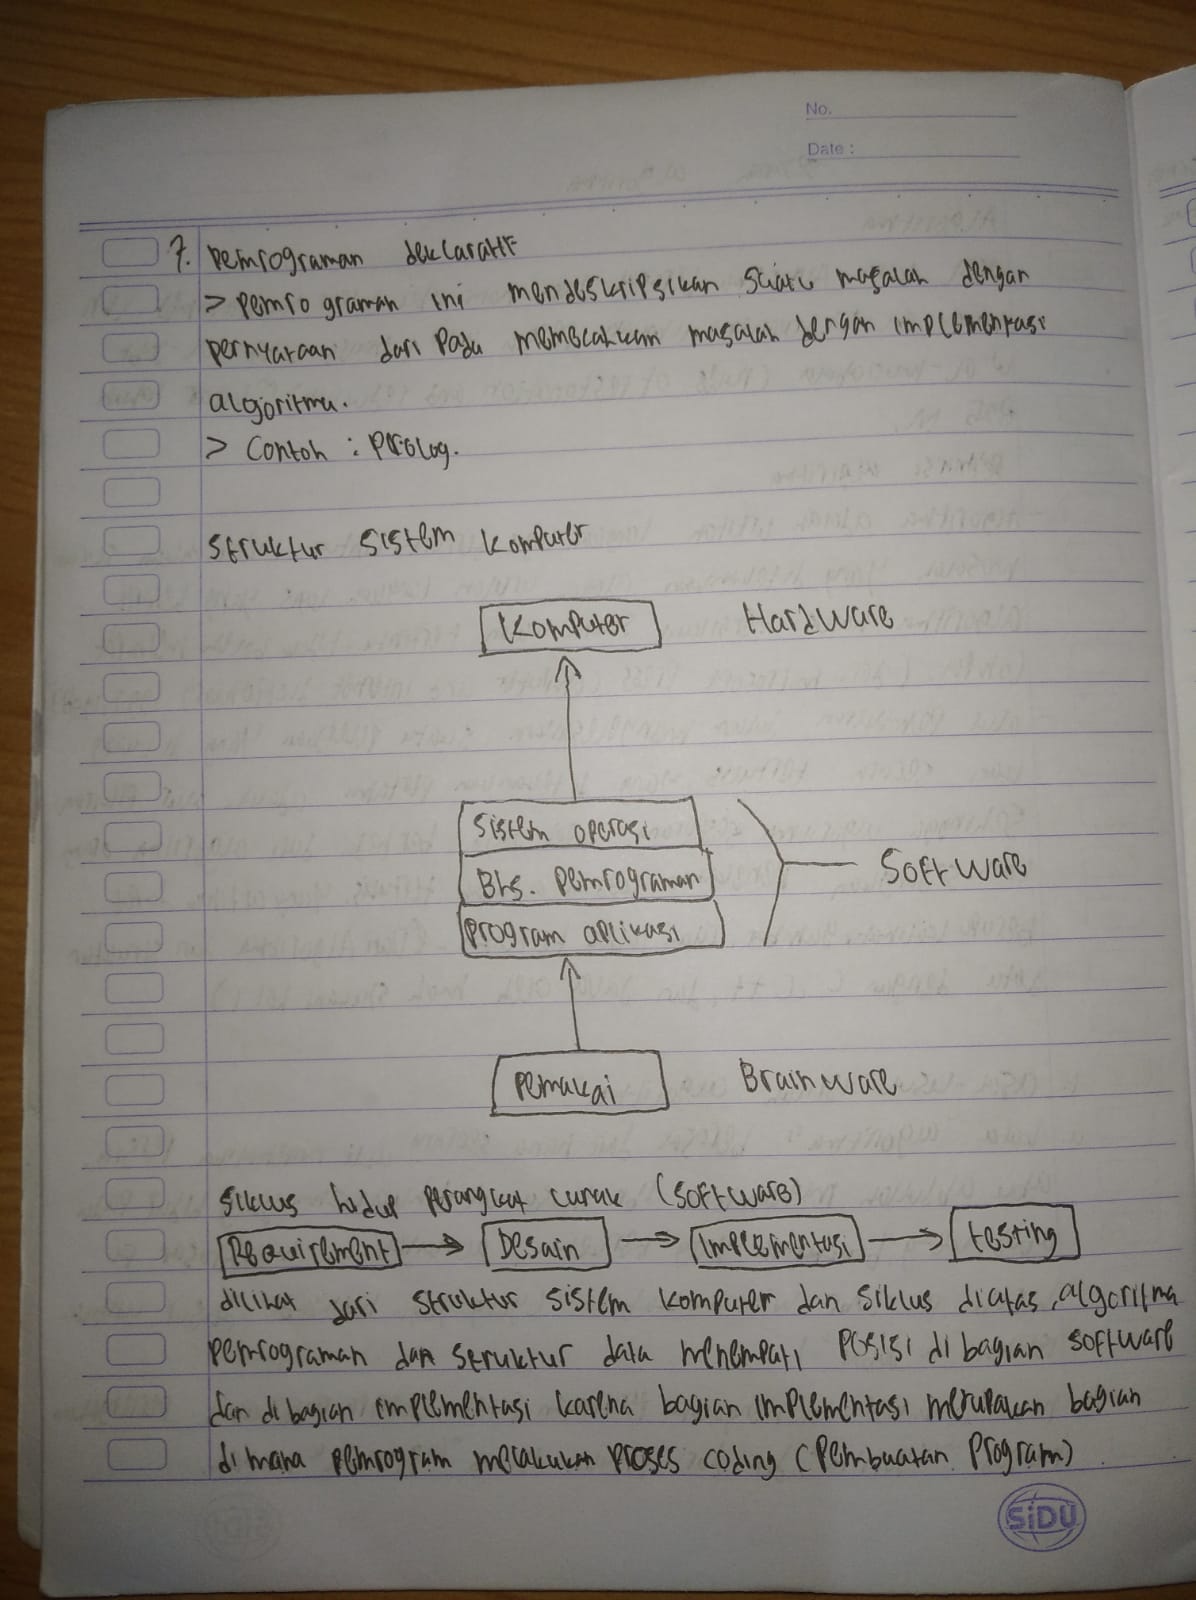 No.
Date :
7. Pemrograman deklaratif
> Pemrograman ini mendeskripsikan suatu masalah dengan
pernyataan dari pada memecahkan masalah dengan implementasi
algoritma.
> Contoh : Prolog.
Struktur sistem komputer
Komputer Hardware
Sistem operasi
Bhs. Pemrograman Software
Program aplikasi
Pemakai Brainware
Siklus hidup perangkat lunak (software)
Requirement → Desain → Implementasi → testing
dilihat dari struktur sistem komputer dan siklus diatas, algoritma
pemrograman dan struktur data menempati posisi di bagian software
dan di bagian implementasi karena bagian implementasi merupakan bagian
di mana pemrogram melakukan proses coding (Pembuatan Program)
SiDU